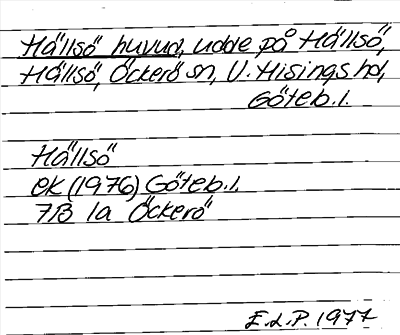 Hällsö huvud, udde på Hällsö,
Hällsö, Öckerö sn, V. Hisings hd,
Göteb. l.
Hällsö
ek (1976) Göteb. l.
7B 1a Öckerö
E.L.P. 1977